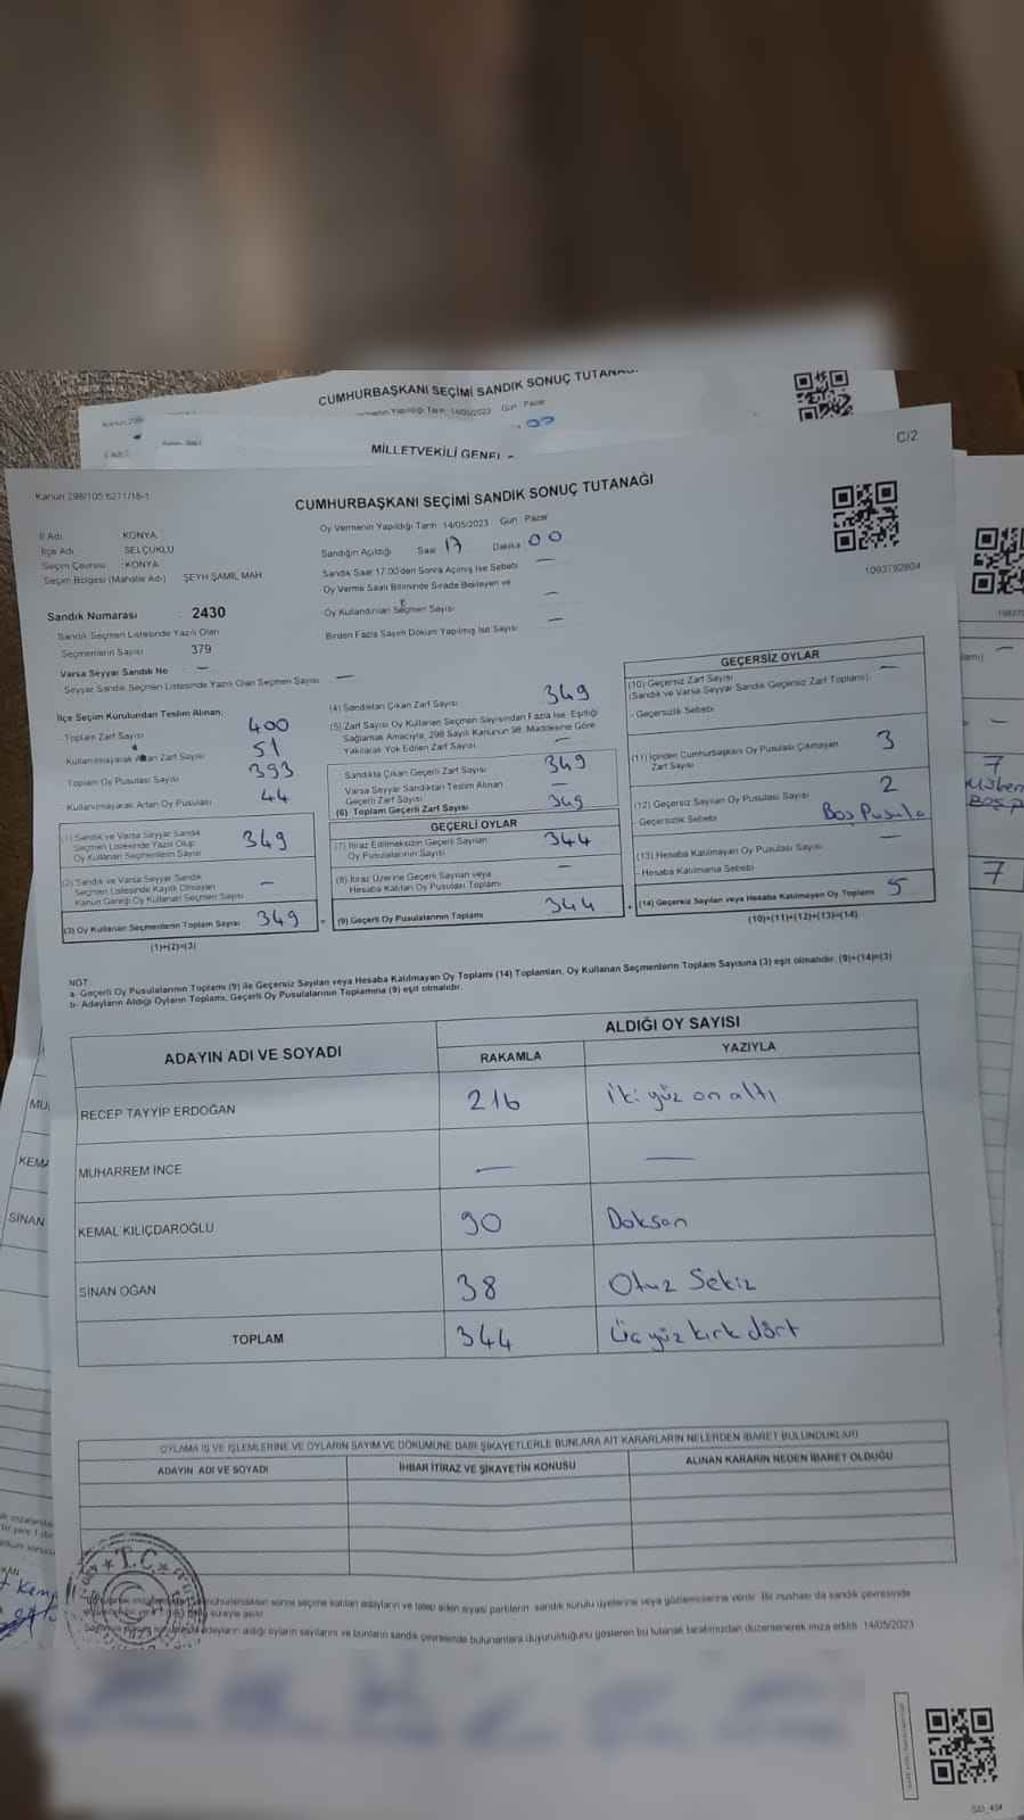 CUMHURBAŞKANI SEÇİMİ SANDIK SONUÇ
MİLLETVEKİLİ
C/2
CUMHURBAŞKANI SEÇİMİ SANDIK SONUÇ TUTANAĞI
İl Adı : KONYA
İlçe Adı : SELÇUKLU
Seçim Çevresi : KONYA
Seçim Bölgesi (Mahalle Adı) ŞEYH ŞAMİL MAH.
Oy Vermenin Yapıldığı Tarih 14/05/2023 Gün : Pazar
Sandığın Açıldığı Saat 17 Dakika 00
Sandık Saat 17.00'den Sonra Açılmış İse Sebebi —
Oy Verme Saati Bitiminde Sırada Bekleyen ve
Oy Kullandırılan Seçmen Sayısı —
Birden Fazla Sayım Döküm Yapılmış İse Sayısı —
1093792804
Sandık Numarası 2430
Sandık Seçmen Listesinde Yazılı Olan
Seçmenlerin Sayısı 379
Varsa Seyyar Sandık No —
Seyyar Sandık Seçmen Listesinde Yazılı Olan Seçmen Sayısı —
İlçe Seçim Kurulundan Teslim Alınan;
Toplam Zarf Sayısı 400
Kullanılmayarak Artan Zarf Sayısı 51
Toplam Oy Pusulası Sayısı 393
Kullanılmayarak Artan Oy Pusulası 44
(1) Sandık ve Varsa Seyyar Sandık
Seçmen Listesinde Yazılı Olup
Oy Kullanan Seçmenlerin Sayısı 349
(2) Sandık ve Varsa Seyyar Sandık
Seçmen Listesinde Kayıtlı Olmayan
Kanun Gereği Oy Kullanan Seçmen Sayısı —
(3) Oy Kullanan Seçmenlerin Toplam Sayısı 349
(1)+(2)=(3)
(4) Sandıktan Çıkan Zarf Sayısı 349
(5) Zarf Sayısı Oy Kullanan Seçmen Sayısından Fazla İse, Eşitliği
Sağlamak Amacıyla, 298 Sayılı Kanunun 98. Maddesine Göre
Yakılarak Yok Edilen Zarf Sayısı —
Sandıkta Çıkan Geçerli Zarf Sayısı 349
Varsa Seyyar Sandıktan Teslim Alınan
Geçerli Zarf Sayısı —
(6) Toplam Geçerli Zarf Sayısı 349
GEÇERLİ OYLAR
(7) İtiraz Edilmeksizin Geçerli Sayılan
Oy Pusulalarının Sayısı 344
(8) İtiraz Üzerine Geçerli Sayılan veya
Hesaba Katılan Oy Pusulası Toplamı —
(9) Geçerli Oy Pusulalarının Toplamı 344
GEÇERSİZ OYLAR
(10) Geçersiz Zarf Sayısı —
(Sandık ve Varsa Seyyar Sandık Geçersiz Zarf Toplamı)
- Geçersizlik Sebebi
(11) İçinden Cumhurbaşkanı Oy Pusulası Çıkmayan
Zarf Sayısı 3
(12) Geçersiz Sayılan Oy Pusulası Sayısı 2
- Geçersizlik Sebebi Boş Pusula
(13) Hesaba Katılmayan Oy Pusulası Sayısı —
- Hesaba Katılmama Sebebi
(14) Geçersiz Sayılan veya Hesaba Katılmayan Oy Toplamı 5
(10)+(11)+(12)+(13)=(14)
NOT:
a- Geçerli Oy Pusulalarının Toplamı (9) ile Geçersiz Sayılan veya Hesaba Katılmayan Oy Toplamı (14) Toplamları, Oy Kullanan Seçmenlerin Toplam Sayısına (3) eşit olmalıdır. (9)+(14)=(3)
b- Adayların Aldığı Oyların Toplamı, Geçerli Oy Pusulalarının Toplamına (9) eşit olmalıdır.
ADAYIN ADI VE SOYADI
ALDIĞI OY SAYISI
RAKAMLA YAZIYLA
RECEP TAYYİP ERDOĞAN 216 İki yüz on altı
MUHARREM İNCE — —
KEMAL KILIÇDAROĞLU 90 Doksan
SİNAN OĞAN 38 Otuz Sekiz
TOPLAM 344 Üç yüz kırk dört
OYLAMA İŞ VE İŞLEMLERİNE VE OYLARIN SAYIM VE DÖKÜMÜNE DAİR ŞİKAYETLERLE BUNLARA AİT KARARLARIN NELERDEN İBARET BULUNDUKLARI
ADAYIN ADI VE SOYADI İHBAR İTİRAZ VE ŞİKAYETİN KONUSU ALINAN KARARIN NEDEN İBARET OLDUĞU
T.C.
14/05/2023
7
7
SİNAN